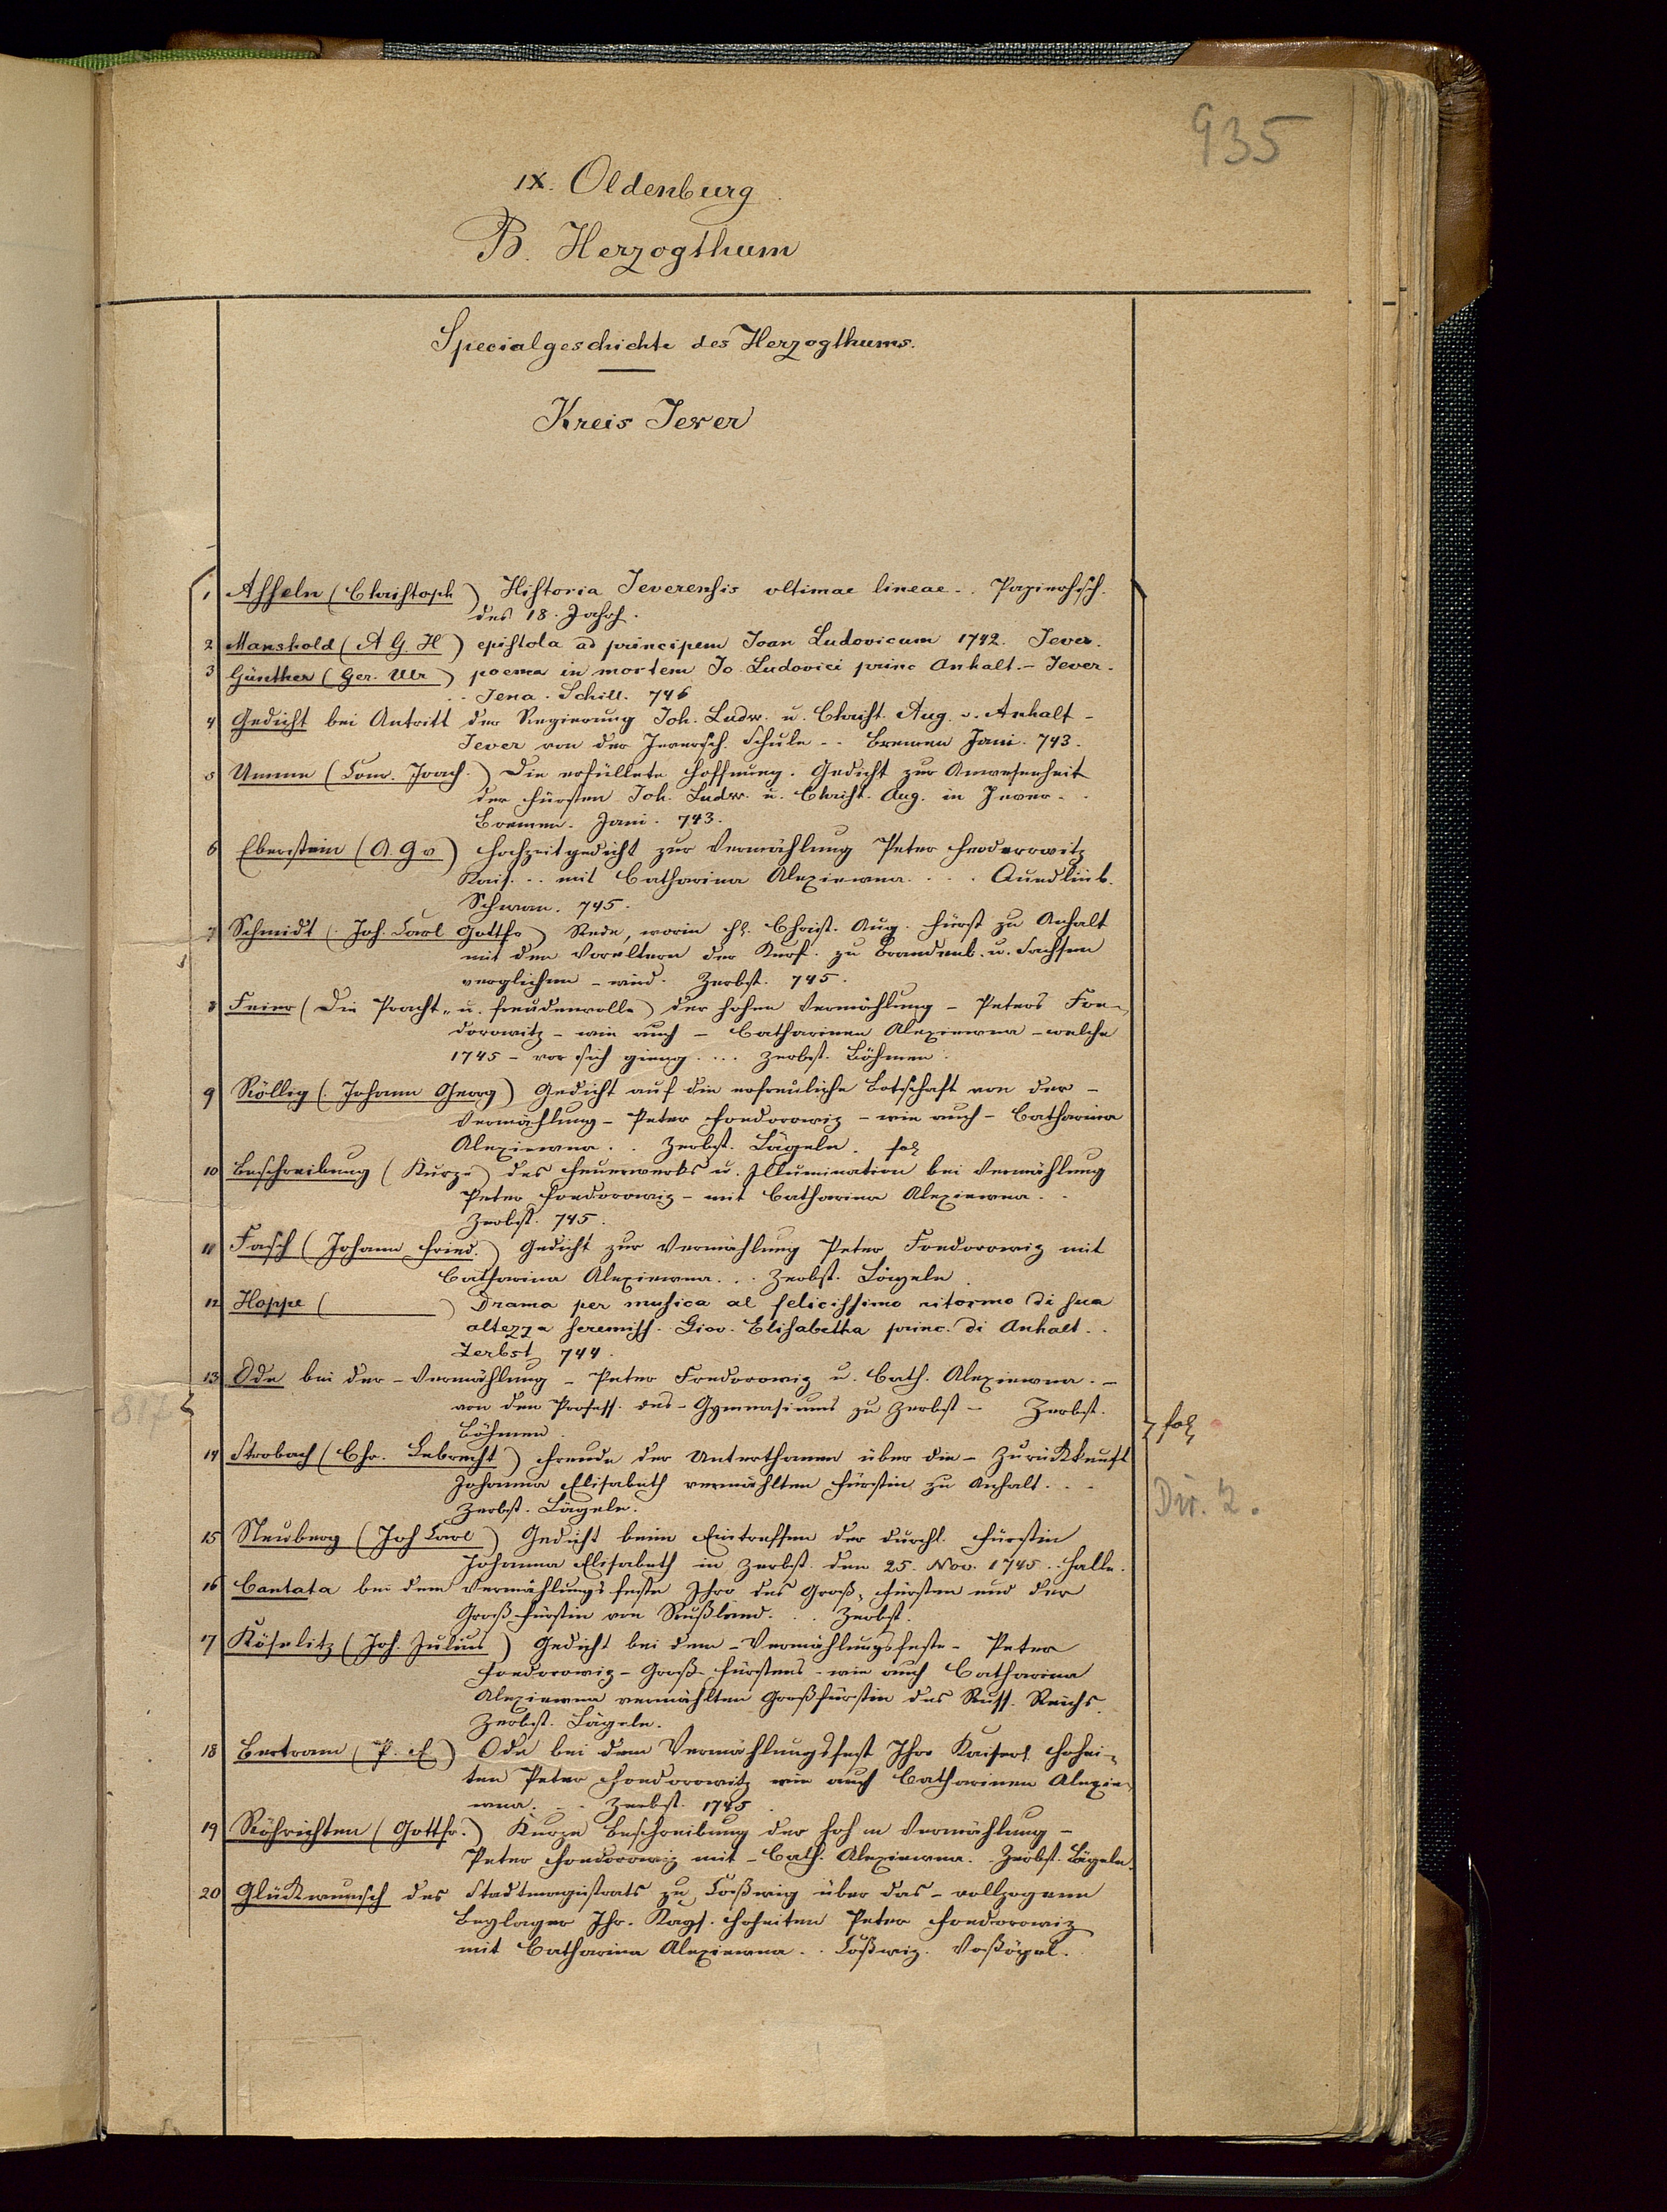 935
IX. Oldenburg
B. Herzogthum
Specialgeschichte des Herzogthums.
Kreis Jever
1 Asseln (Christoph) Historia Jeverensis ultimae lineae .. Papierhsch.
des 18. Jahrh.
2 Manshold (A G. H) epistola ad principem Joan Ludovicum 1742. Jever.
3 Günther (Ger. Ulr) poema in mortem Jo. Ludovici princ Anhalt. - Jever.
.. Jena. Schill. 746
4 Gedicht bei Antritt der Regierung Joh. Ludw. u. Christ. Aug. v. Anhalt -
Jever von der Jeversch. Schule .. Bremen Jani. 743.
5 Umme (Conr. Joach.) Die erfüllete Hoffnung. Gedicht zur Anwesenheit
der Fürsten Joh. Ludw. u. Christ. Aug. in Jever ..
Bremen. Jani. 743.
6 Eberstein (A. G v) Hochzeitgedicht zur Vermählung Peter Feoderowitz
Kais. .. mit Catharina Alexiewna .... Quedlinb.
Schwan. 745.
7 Schmidt (Joh. Carl Gottfr) Rede, worin H. Christ. Aug. Fürst zu Anhalt
mit den Voreltern der Kurf. zu Brandenb. u. Sachsen
verglichen - wird. Zerbst. 745.
8 Feier (Die Pracht- u. freudenvolle) der hohen Vermählung - Peters Foe-
dorowitz - wie auch - Catharinen Alexiewna - welche
1745 - vor sich gieng .... Zerbst. Böhmen.
9 Röllig (Johann Georg) Gedicht auf die erfreuliche Botschaft von der -
Vermählung - Peter Foedorowiz - wie auch - Catharina
Alexiewna .. Zerbst. Lägeln. fol
10 Beschreibung (Kurze) des Feuerwerks u. Illumination bei Vermählung
Peter Foedorowiz - mit Catharina Alexiewna ..
Zerbst. 745.
11 Fasch (Johann Fried.) Gedicht zur Vermählung Peter Foedorowiz mit
Catharina Alexiewna ... Zerbst. Lägeln.
12 Hoppe ( ) Drama per musica al felicissimo ritorno di sua
altezza sereniss. Giov. Elisabetha princ. di Anhalt ..
Zerbst 744.
13 Ode bei der - Vermählung - Peter Foedorowiz u. Cath. Alexiewna. -
von den Profess. des - Gymnasiums zu Zerbst - Zerbst.
Böhmen.
817
fol
14 Strobach (Chr. Lebrecht) Freude der Unterthanen über die - Zurückkunft
Johanna Elisabeth vermählten Fürstin zu Anhalt ...
Zerbst. Lägeln.
Dir. 2.
15 Neuberg (Joh Carl) Gedicht beim Eintreffen der durchl. Fürstin
Johanna Elisabeth in Zerbst den 25. Nov. 1745 .. Halle.
16 Cantata bei dem Vermählungsfeste Ihro des Groß-Fürsten und der
Groß-Fürstin von Rußland ... Zerbst.
17 Köselitz (Joh. Julius) Gedicht bei dem - Vermählungsfeste - Peter
Foedorowiz - Groß-Fürstens - wie auch Catharina
Alexiewna vermählten Großfürstin des Russ. Reichs.
Zerbst. Lägeln.
18 Bertram (P. E) Ode bei dem Vermählungsfest Ihro Kaiserl. Hohei-
ten Peter Foedorowitz wie auch Catharinen Alexie-
wna ... Zerbst. 1745.
19 Röhrichten (Gottfr.) Kurze Beschreibung der hohen Vermählung -
Peter Foedorowiz mit - Cath. Alexiewna. Zerbst. Lägeln.
20 Glückwunsch des Stadtmagistrats zu Coßwig über das - vollzogene
Beylager Ihr. Kays. Hoheiten Peter Foedorowiz
mit Catharina Alexiewna .. Coßwig.